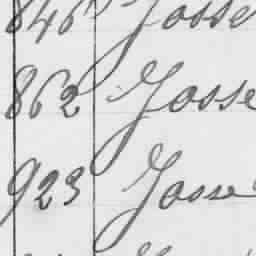 846 Josse
862 Josse
923 Josse